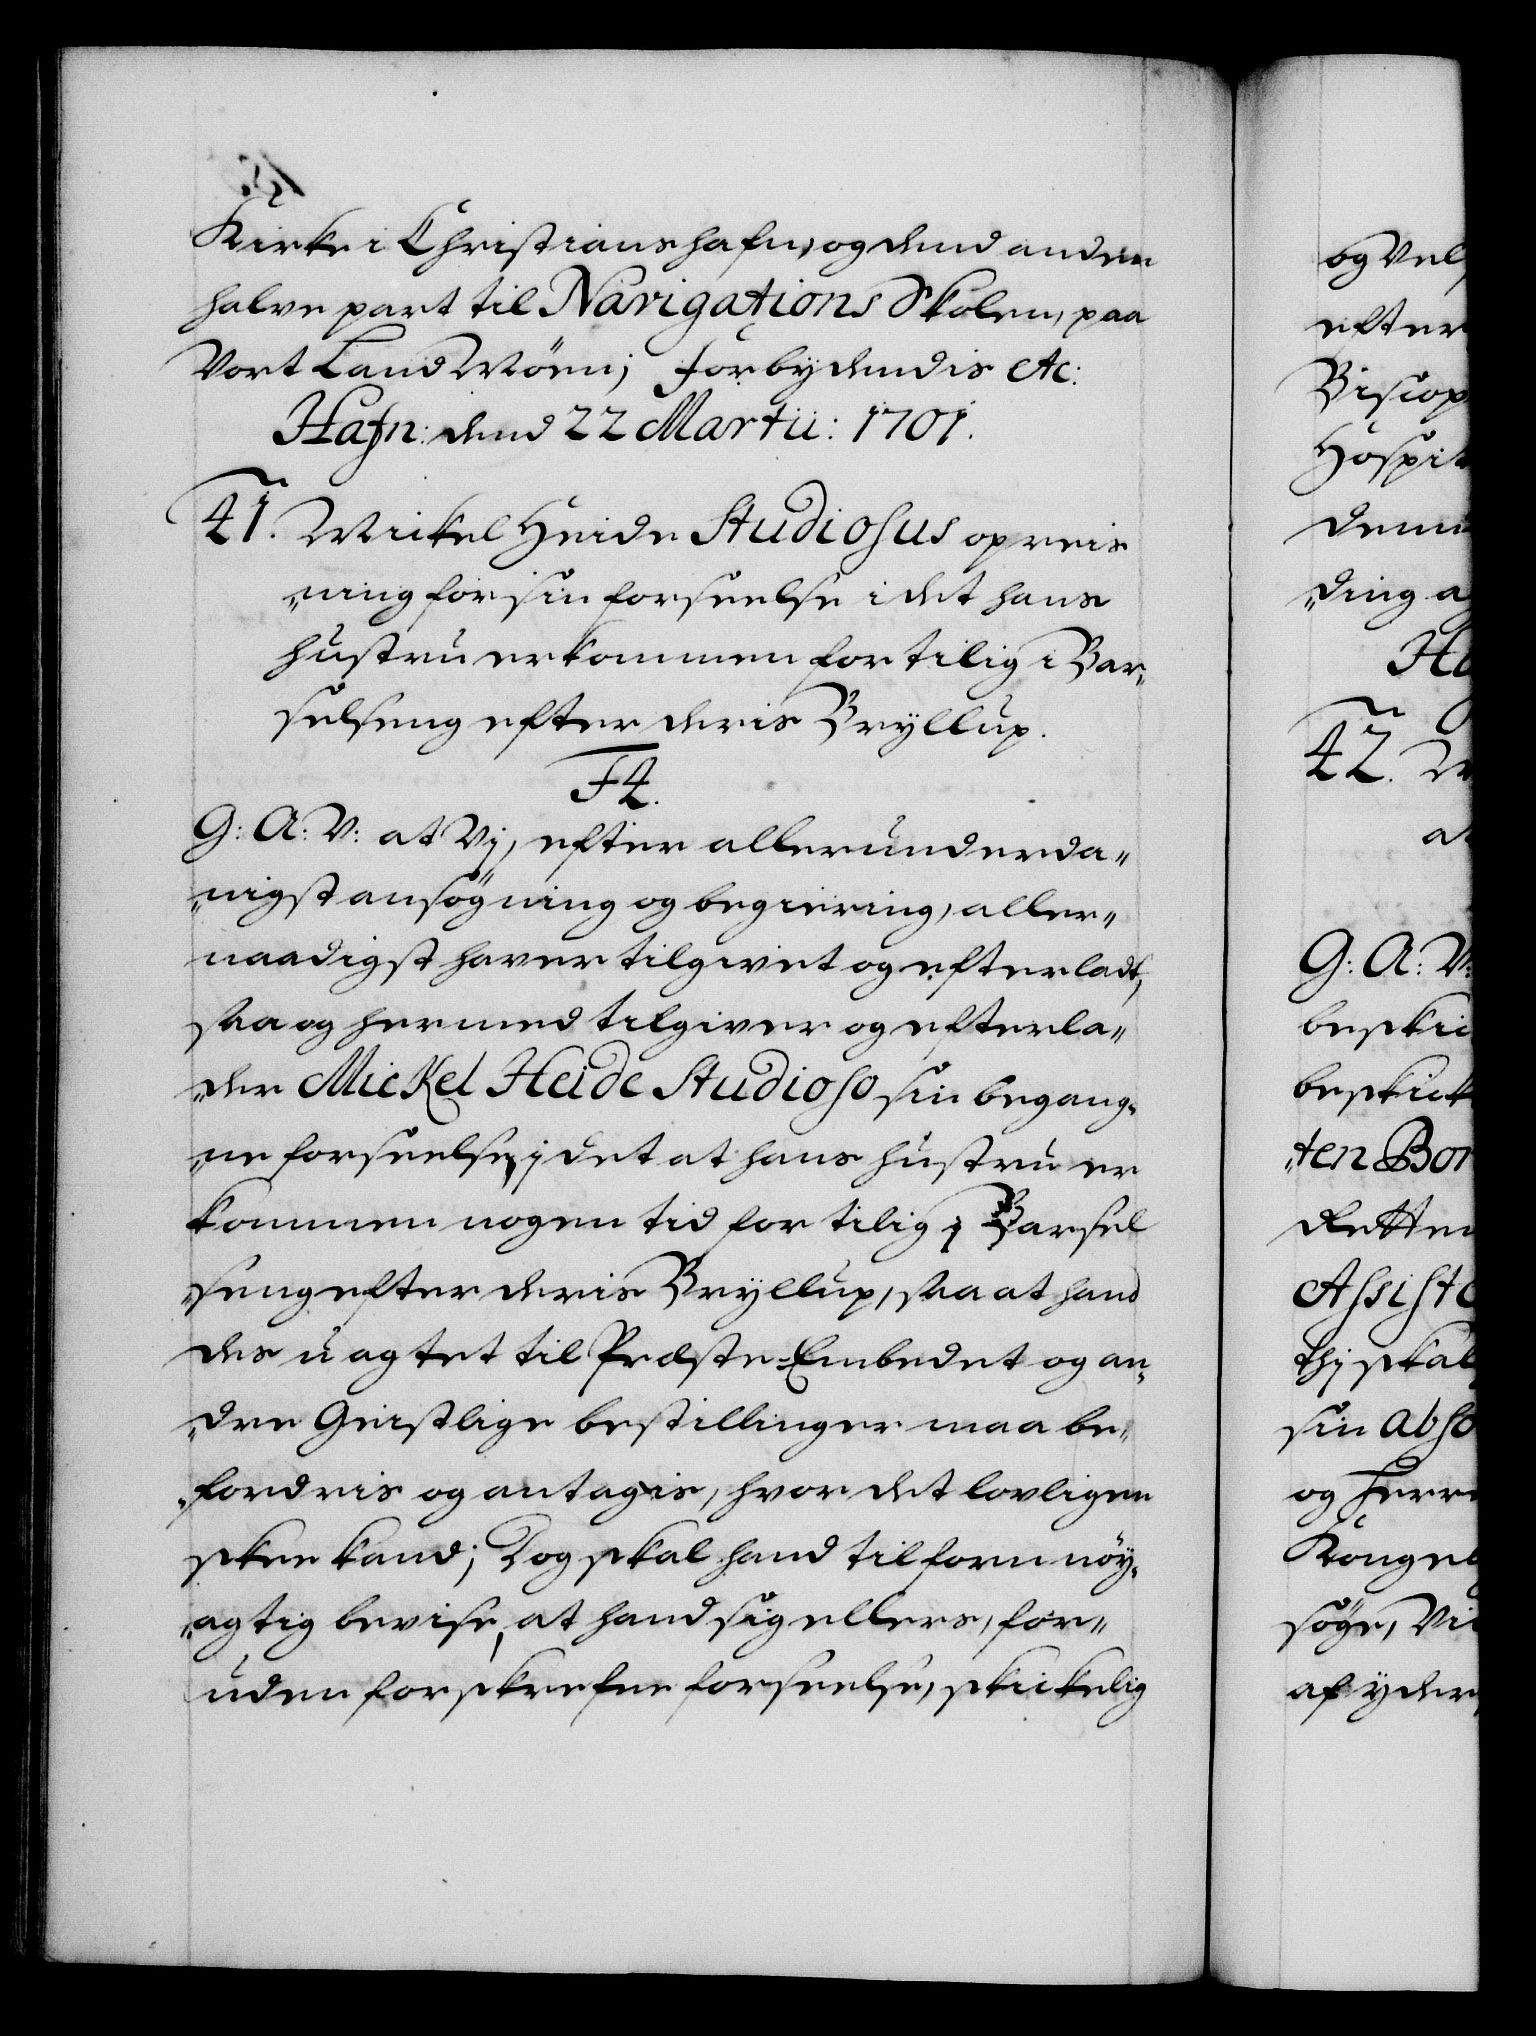 Kirke i Christianshafn, og dend anden
halve part til Navigations Skolen, paa
Vort Land Möen; Forbydendis etc:
Hafn: dend 22 Martii: 1701.
41. Mickel Heide Studiosus opreis
"ning for sin forseelse i det hans
hustru er kommen for tilig i Bar„
selseng efter deris Bryllup.
F4.
G: A: V: at Vj, efter allerunderda„
"nigst ansögning og begiering, aller„
naadigst haver tilgivet og efterladt,
saa og hermed tilgiver og efterla„
"der Mickel Heide Studioso sin begang„
"ne forseelse, j det at hans hustru er
kommen nogen tid for tilig j Barsel
"seng efter deris Bryllup, saa at hand
des uagtet til Præste-Embedet og an„
"dre Geistlige bestillinger maa be„
"fordris og antagis, hvor det lovligen
skee kand; Dog skal hand tilforn nöy„
"agtig bevise, at hand sig ellers, for„
uden forskrefne forseelse, skickelig
og Vel
efter
Biscop
Hospit
denn
"ding a
42. M
at
G: A: V:
beskic
beskick
"ten Bor
Retten
Assiste
thj skal
sin abso
og Herre
Kongel
söge, Vi
af yder